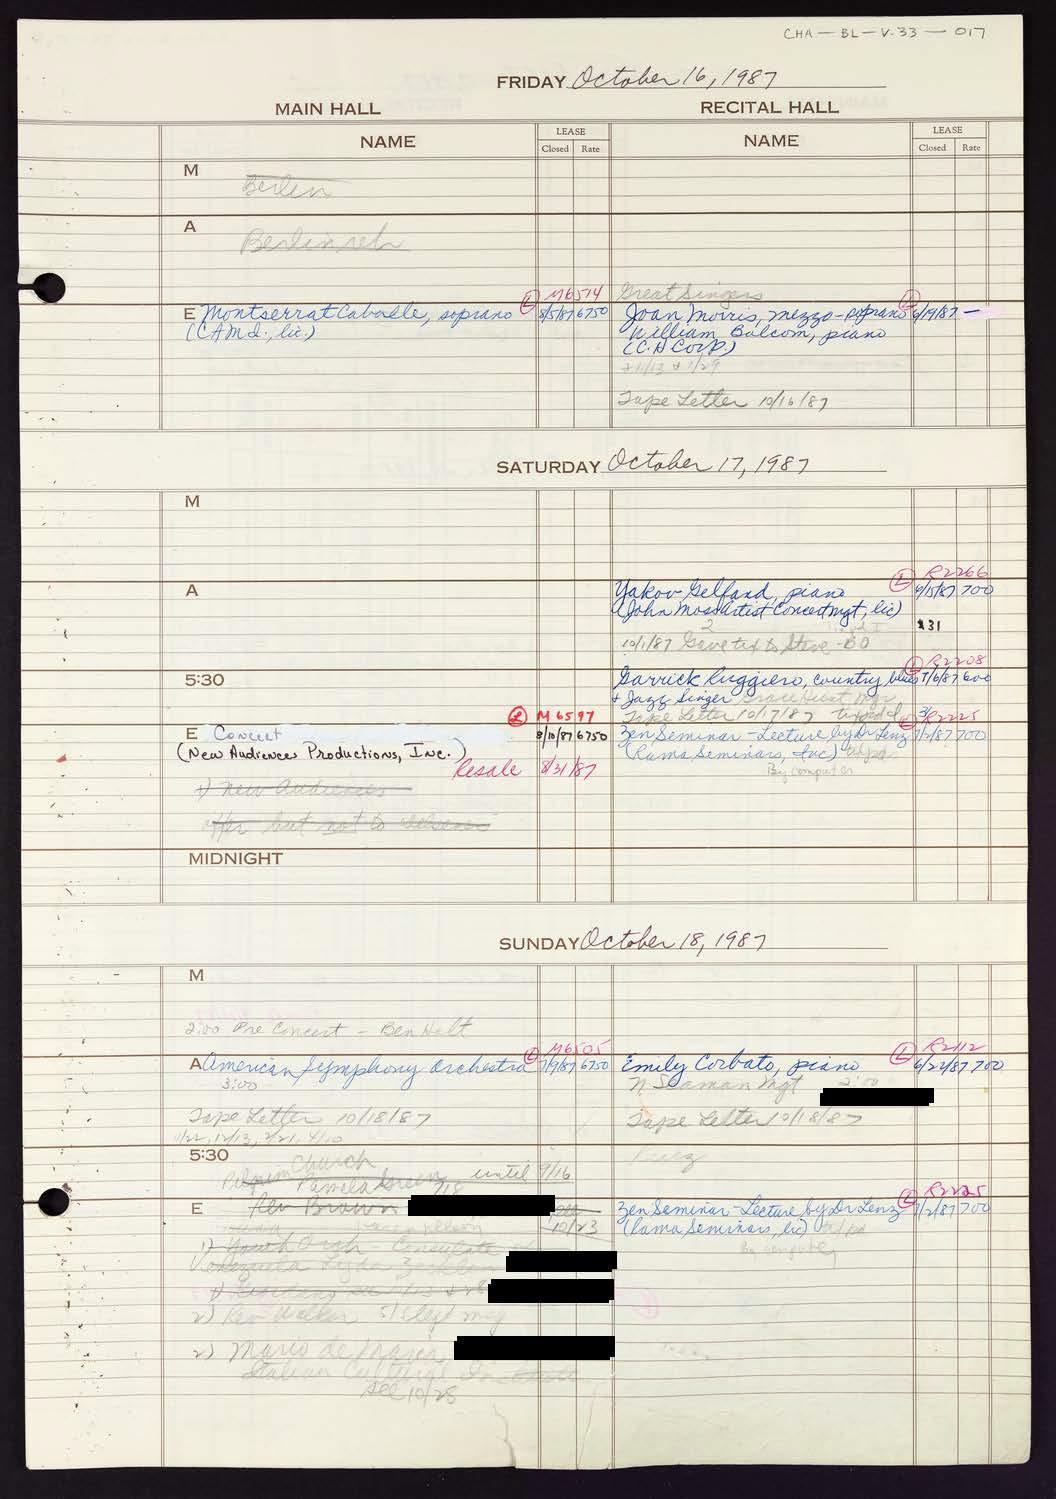 CHA-BL-V.33-017
FRIDAY October 16, 1987
MAIN HALL
RECITAL HALL
NAME
LEASE
Closed Rate
NAME
LEASE
Closed Rate
M
Berlin
A
Berlin reh
E Montserrat Caballe, soprano
(CAMI., lic.)
L M6574
8/5/87 6750
Great Singers
Joan Morris, mezzo-soprano
L 6/19/87 —
William Bolcom, piano
(C.H. Corp.)
+ 11/13 + 1/29
Tape Letter 10/16/87
SATURDAY October 17, 1987
M
A
Yakov Gelfand, piano
L R2266
9/15/87 700
(John Moss Artist Concert Mgt, lic)
31
10/1/87 Gave 2 tix to Steve - BO
5:30
Garrick Ruggiero, country blues
L R2208
7/6/87 600
+ Jazz Singer
Tape Letter 10/17/87
E Concert
(New Audiences Productions, Inc.)
L M6597
8/10/87 6750
Resale 8/31/87
1) New Audiences
offer but not to
Zen Seminar - Lecture by Dr Lenz
R2225
7/2/87 700
(Rama Seminars, Inc)
By computer
MIDNIGHT
SUNDAY October 18, 1987
M
2:00 Pre Concert - Ben Holt
A American Symphony Orchestra
L M6505
7/9/87 6750
3:00
Tape Letter 10/18/87
11/22, 12/13, 2/21, 4/10
Emily Corbato, piano
L R2112
6/22/87 700
N. Seaman Mgt 2:00
Tape Letter 10/18/87
5:30
Church
Pamela Green until 9/16
E Rev Brown
10/23
1) Youth Orch - Consulate
Venezuela
2) Rev Walker
2) Mario de Maria
Italian Cultural Institute
see 10/28
Zen Seminar - Lecture by Dr Lenz
L R2225
7/2/87 700
(Rama Seminars, lic)
By computer